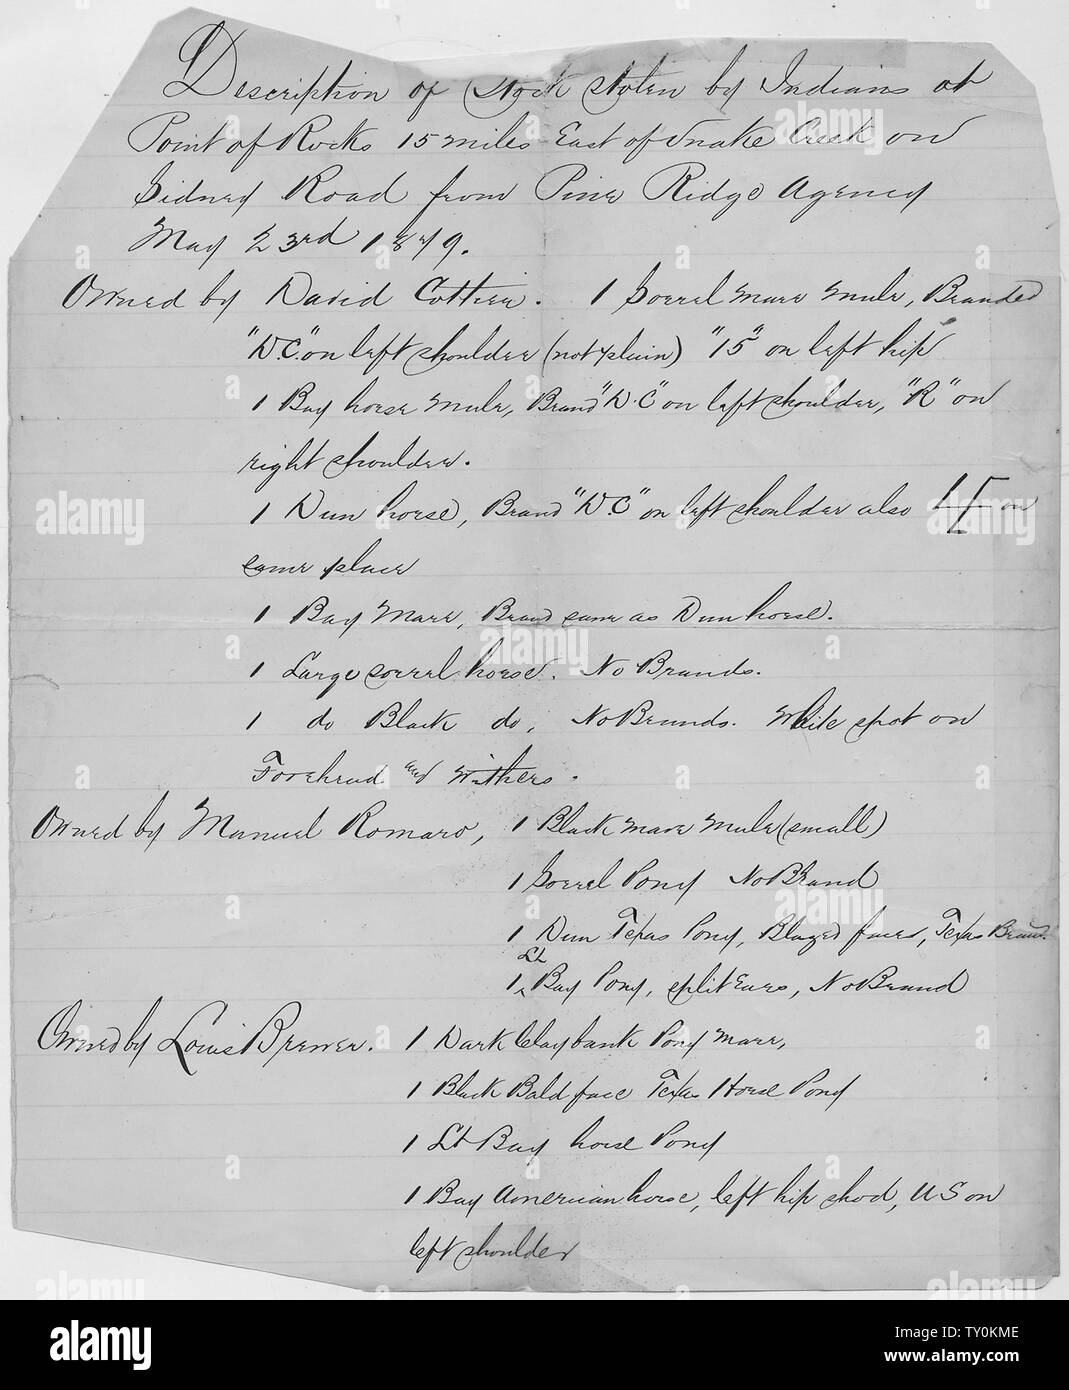 Description of Stock Stolen by Indians at
Point of Rocks 15 miles East of Snake Creek on
Sidney Road from Pine Ridge Agency
May 23rd 1879.
Owned by David Cottier. 1 Sorrel mare mule, Branded
"D.C." on left shoulder (not plain) "15" on left hip
1 Bay horse mule, Brand "D.C" on left shoulder, "R" on
right shoulder.
1 Dun horse, Brand "D.C" on left shoulder also on
same place
1 Bay Mare, Brand same as Dun horse.
1 Large sorrel horse. No Brands.
1 do Black do, No Brands. White spot on
Forehead and Withers.
Owned by Manuel Romaro, 1 Black mare mule (small)
1 Sorrel Pony No Brand
1 Dun Texas Pony, Blazed face, Texas Brand.
1 Lt Bay Pony, split Ears, No Brand
Owned by Louis Brewer. 1 Dark Claybank Pony mare,
1 Black Bald face Texas Horse Pony
1 Lt Bay horse Pony
1 Bay American horse, left hip shod, US on
left shoulder
alamy
alamy
alamy
alamy
alamy
alamy
alamy
a
a
a
a
a
a
a
a
a
a
alamy
Image ID: TY0KME
www.alamy.com